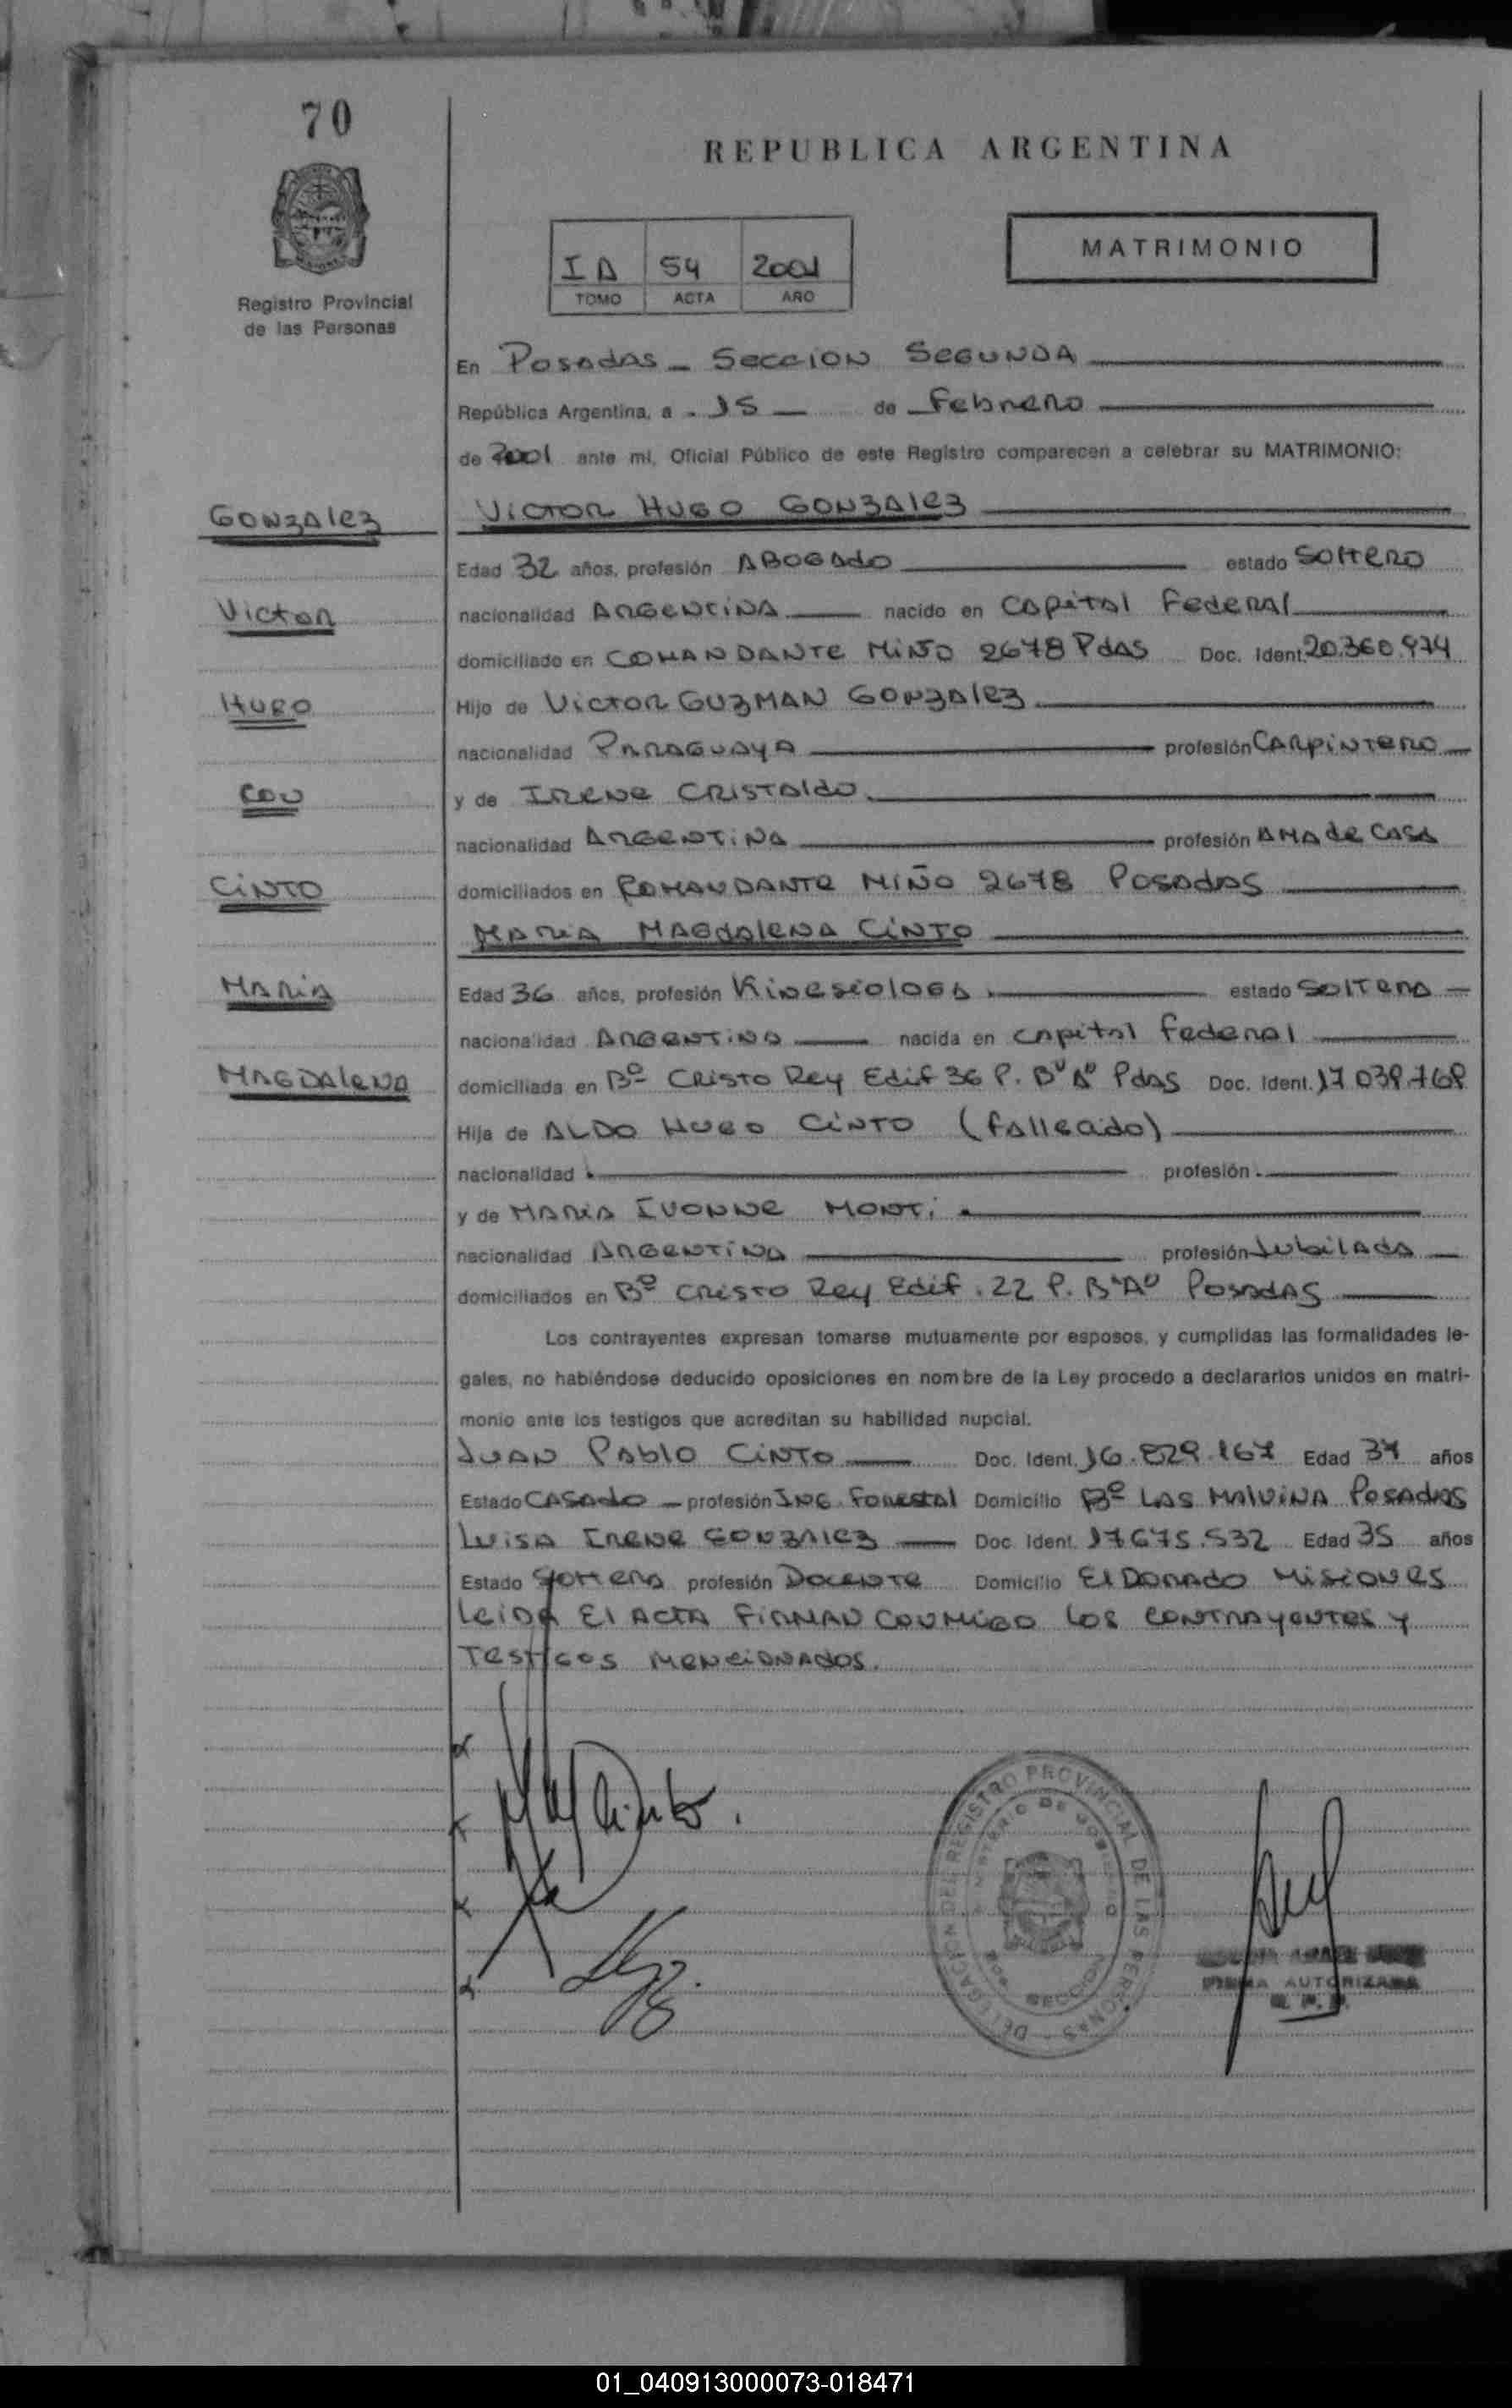 70
REPUBLICA ARGENTINA
MATRIMONIO
IA 54 2001
TOMO ACTA AÑO
Registro Provincial
de las Personas
En Posadas - Seccion Segunda
República Argentina, a 15 de Febrero
de 2001 ante mí, Oficial Público de este Registro comparecen a celebrar su MATRIMONIO:
Gonzalez
Victor Hugo Gonzalez
Edad 32 años, profesión Abogado estado Soltero
Victor
nacionalidad Argentina nacido en Capital Federal
domiciliado en Comandante Miño 2678 Pdas Doc. Ident. 20.360.974
Hugo
Hijo de Victor Guzman Gonzalez
nacionalidad Paraguaya profesión Carpintero
con
y de Irene Cristaldo
nacionalidad Argentina profesión Ama de Casa
Cinto
domiciliados en Comandante Miño 2678 Posadas
Maria Magdalena Cinto
Maria
Edad 36 años, profesión Kinesiologa estado Soltera
nacionalidad Argentina nacida en Capital Federal
Magdalena
domiciliada en Bº Cristo Rey Edif 36 P. B "A" Pdas Doc. Ident. 17 039.768
Hija de Aldo Hugo Cinto (fallecido)
nacionalidad profesión
y de Maria Ivonne Monti
nacionalidad Argentina profesión Jubilada
domiciliados en Bº Cristo Rey Edif. 22 P. B "A" Posadas
Los contrayentes expresan tomarse mutuamente por esposos, y cumplidas las formalidades le-
gales, no habiéndose deducido oposiciones en nombre de la Ley procedo a declararlos unidos en matri-
monio ante los testigos que acreditan su habilidad nupcial.
Juan Pablo Cinto Doc. Ident. 16.829.167 Edad 37 años
Estado Casado profesión Ing. Forestal Domicilio Bº Las Malvina Posadas
Luisa Irene Gonzalez Doc. Ident. 17675.532 Edad 35 años
Estado Soltera profesión Docente Domicilio El Dorado Misiones
Leida El Acta Firman conmigo los contrayentes y
Testigos mencionados.
DELEGACION DEL REGISTRO PROVINCIAL DE LAS PERSONAS
MINISTERIO DE GOBIERNO
SECCION
FIRMA AUTORIZADA
01_040913000073-018471